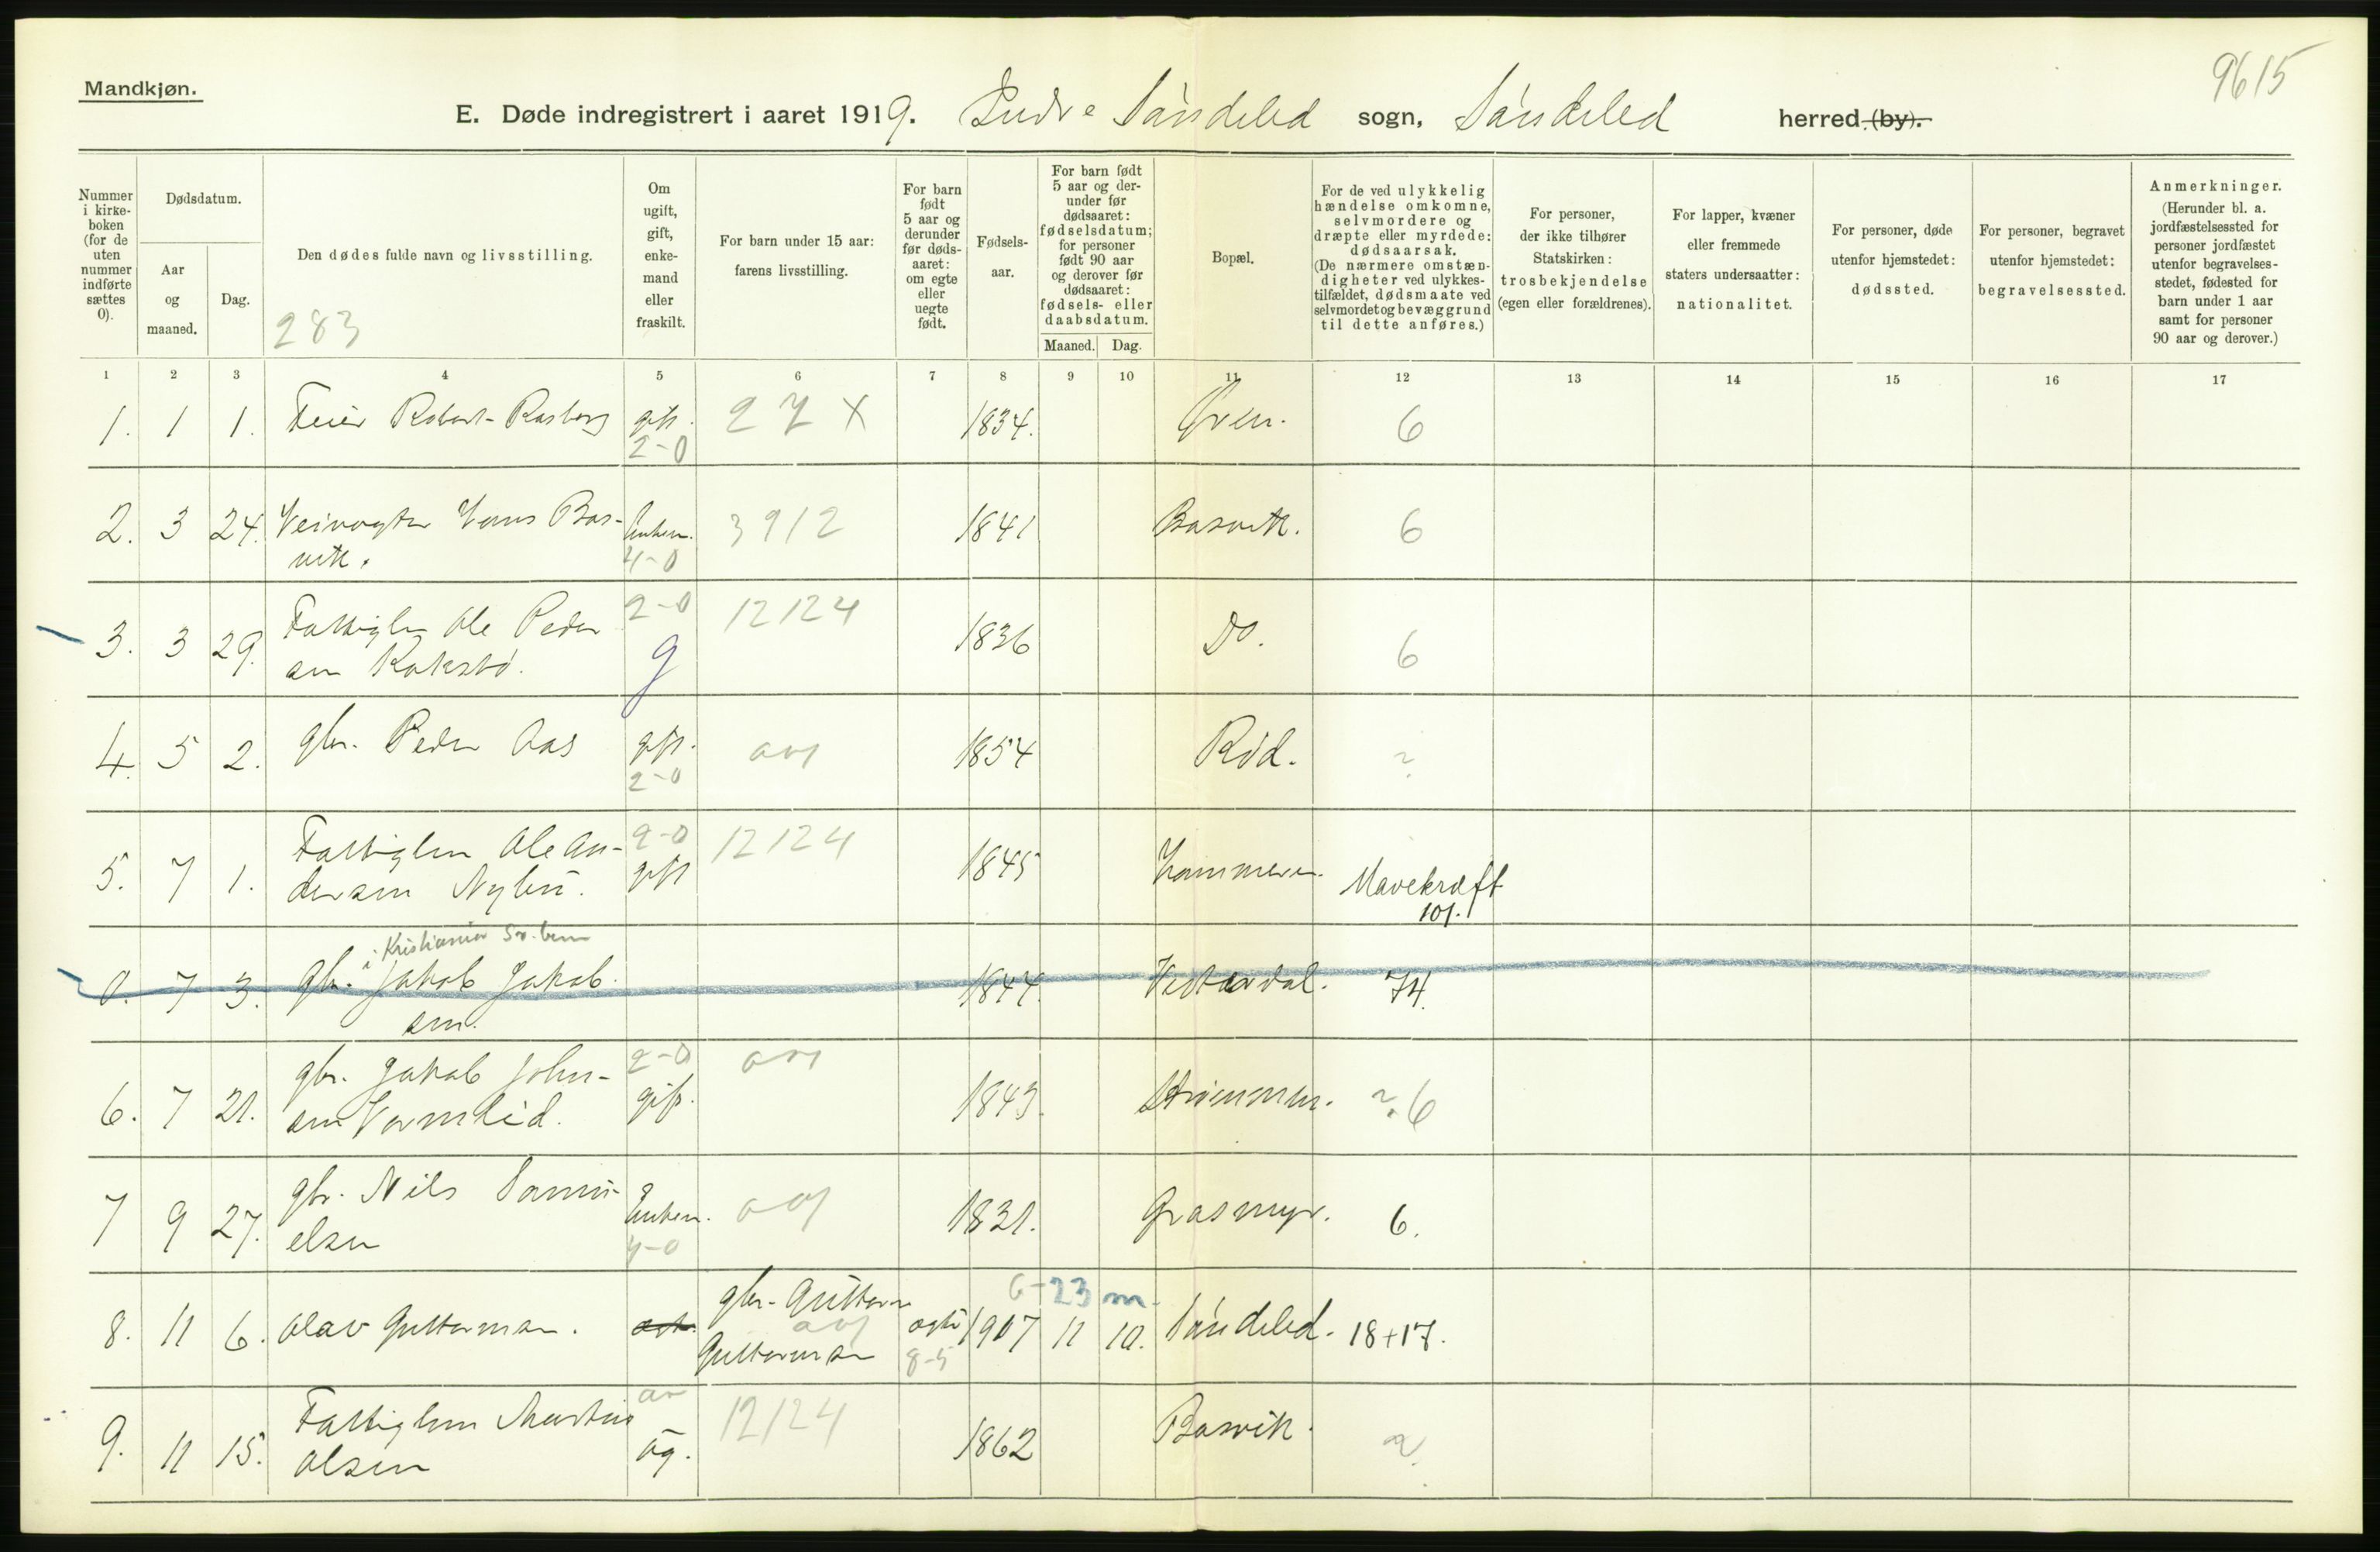 9615
Mandkjøn.
E. Døde indregistrert i aaret 1919. Indre Søndeled sogn, Søndeled herred (by).
Nummer i kirke-boken (for de uten nummer indførte sættes 0).
Dødsdatum.
Aar og maaned.
Dag.
Den dødes fulde navn og livsstilling.
283
Om ugift, gift, enke-mand eller fraskilt.
For barn under 15 aar: farens livsstilling.
For barn født 5 aar og derunder før døds-aaret: om egte eller uegte født.
Fødsels-aar.
For barn født 5 aar og der-under før dødsaaret: fødselsdatum; for personer født 90 aar og derover før dødsaaret: fødsels- eller daabsdatum.
Maaned. Dag.
Bopæl.
For de ved ulykkelig hændelse omkomne, selvmordere og dræpte eller myrdede: dødsaarsak. (De nærmere omstæn-digheter ved ulykkes-tilfældet, dødsmaate ved selvmordet og bevæggrund til dette anføres.)
For personer, der ikke tilhører Statskirken: trosbekjendelse (egen eller forældrenes).
For lapper, kvæner eller fremmede staters undersaatter: nationalitet.
For personer, døde utenfor hjemstedet: dødssted.
For personer, begravet utenfor hjemstedet: begravelsessted.
Anmerkninger. (Herunder bl. a. jordfæstelsessted for personer jordfæstet utenfor begravelses-stedet, fødested for barn under 1 aar samt for personer 90 aar og derover.)
1 2 3 4 5 6 7 8 9 10 11 12 13 14 15 16 17
1. 1 1. Feier Robert Rasberg gift. 27 X 1834. 6
2-0
2. 3 24. Veivogter Hans Bas- enkem. 3912 1841 Basvik. 6
vik. 4-0
3. 3 29. Fattiglem Ole Peder 2-0 12124 1836 Do. 6
sen Rokstø. g
4. 5 2. gbr. Peder Aas gift. aog 1854 Rød. ?
2-0
5. 7 1. Fattiglem Ole An- 2-0 12124 1845 Hammeren. Mavekræft
dersen Nylen. gift 101.
i Kristiania
0. 7 3. gbr. Jakob Jakob- 1844. Vesterdal. 74.
sen.
6. 7 21. gbr. Jakob John- 2-0 aog 1843. Strømmen. ? 6
sen Vormelid. gift.
7 9 27. gbr. Nils Samu- enkem. aog 1831. Grasmyr. 6.
elsen 4-0
gbr. Guttorm 6-23 m.
8. 11 6. Olav Guttormsen. aog egte 1907 11 10. Søndeled. 18+17.
Guttormsen 8-5
9. 11 15. Fattiglem Martin 12124 1862 Basvik. ?
Olsen ug.